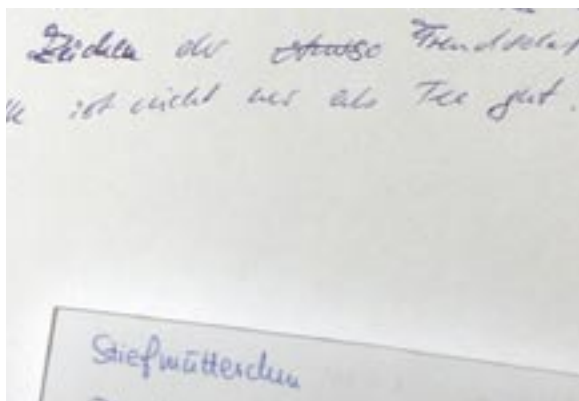 Zeichen der Freundschaf
ist nicht nur als Tee gut.
Stiefmütterchen